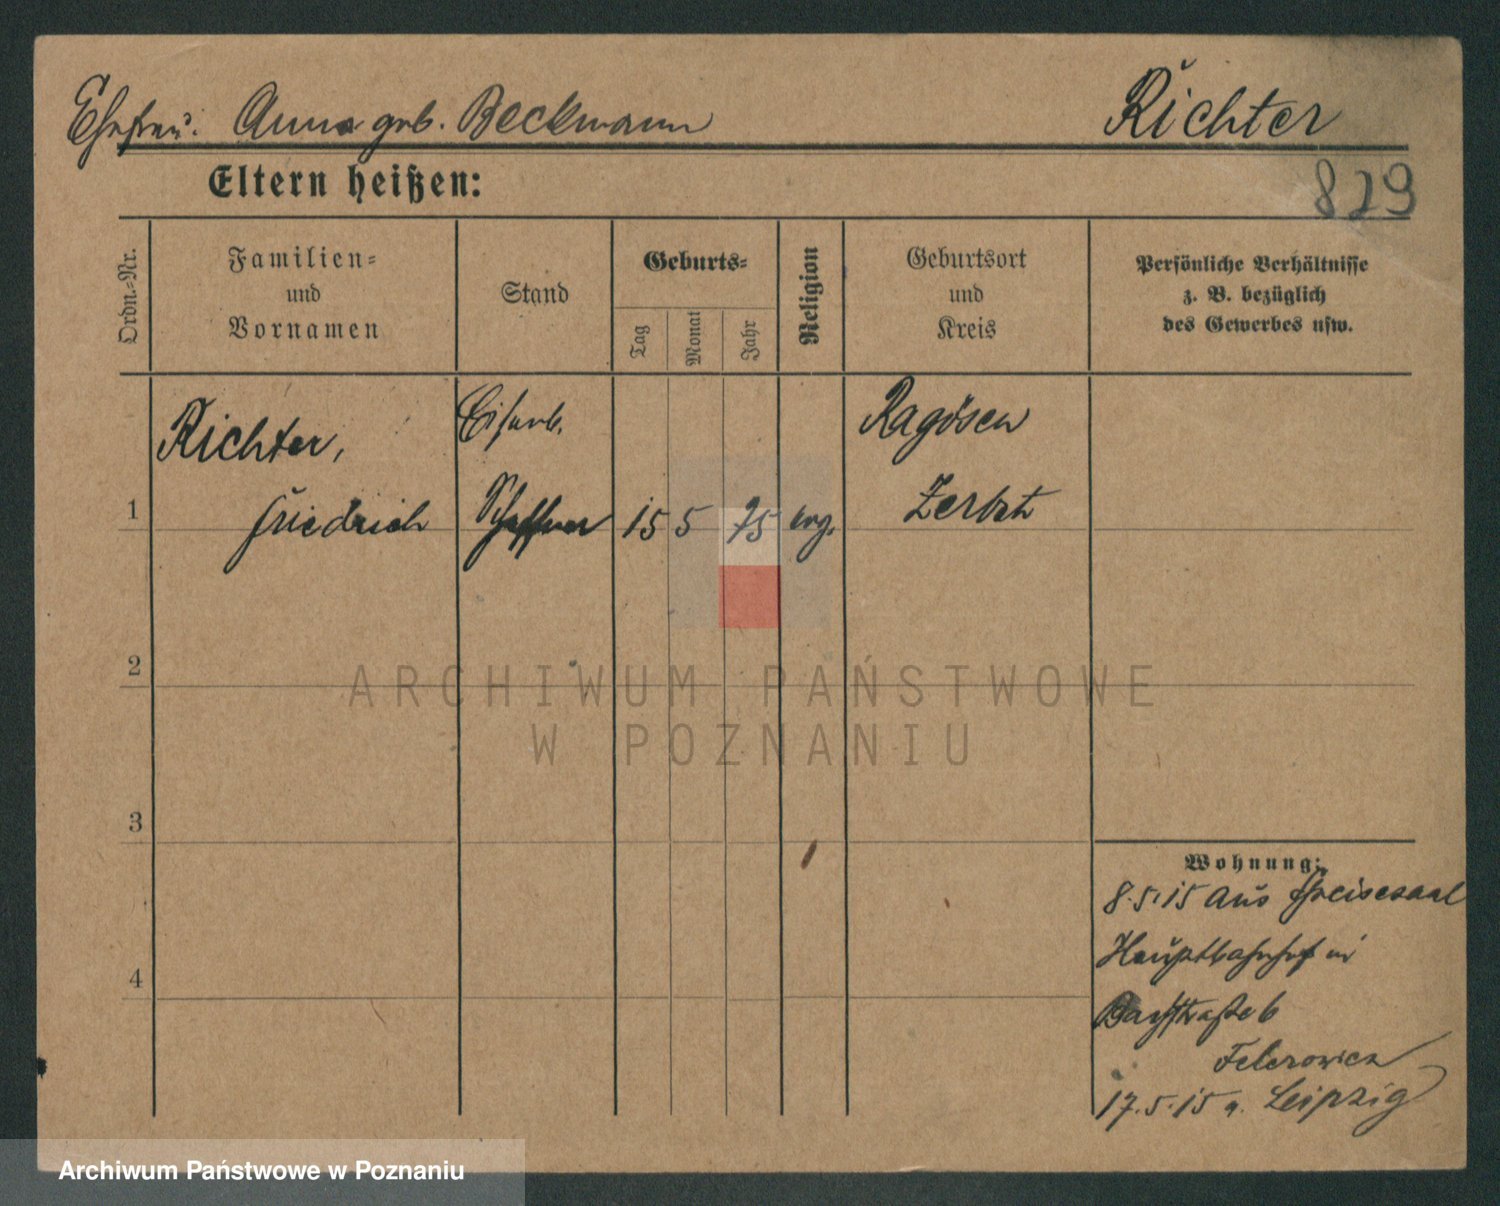 Ehefrau. Anna geb. Beckmann
Richter
829
Eltern heißen:
Ordn.-Nr.
Familien-
und
Vornamen
Stand
Geburts-
Tag
Monat
Jahr
Religion
Geburtsort
und
Kreis
Persönliche Verhältnisse
z. B. bezüglich
des Gewerbes usw.
Richter,
Eisenb.
Ragösen
1
Friedrich
Schaffner
15
5
75
evg.
Zerbst
2
ARCHIWUM PAŃSTWOWE
W POZNANIU
3
Wohnung:
8.5.15 aus Speisesaal
Hauptbahnhof in
4
17.5.15 n. Leipzig
Archiwum Państwowe w Poznaniu